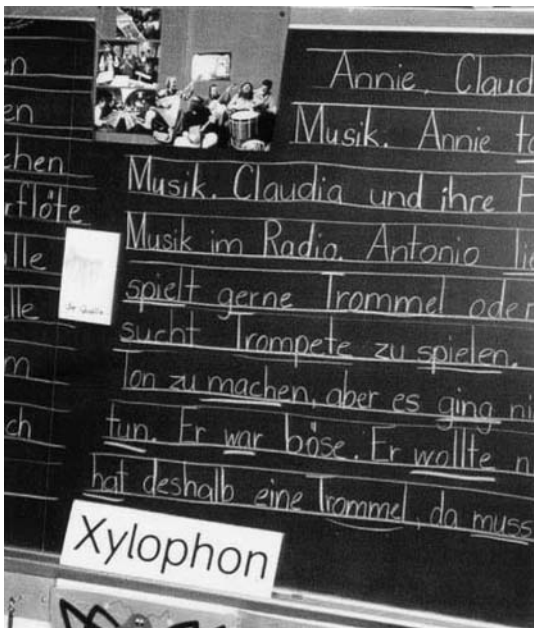 en
en
chen
rflöte
lle
lle
m
ch
Annie, Claud
Musik. Annie
Musik. Claudia und ihre
Musik im Radio. Antonio lie
spielt gerne Trommel oder
sucht Trompete zu spielen.
Ton zu machen, aber es ging ni
tun. Er war böse. Er wollte n
hat deshalb eine Trommel, da muss
Xylophon